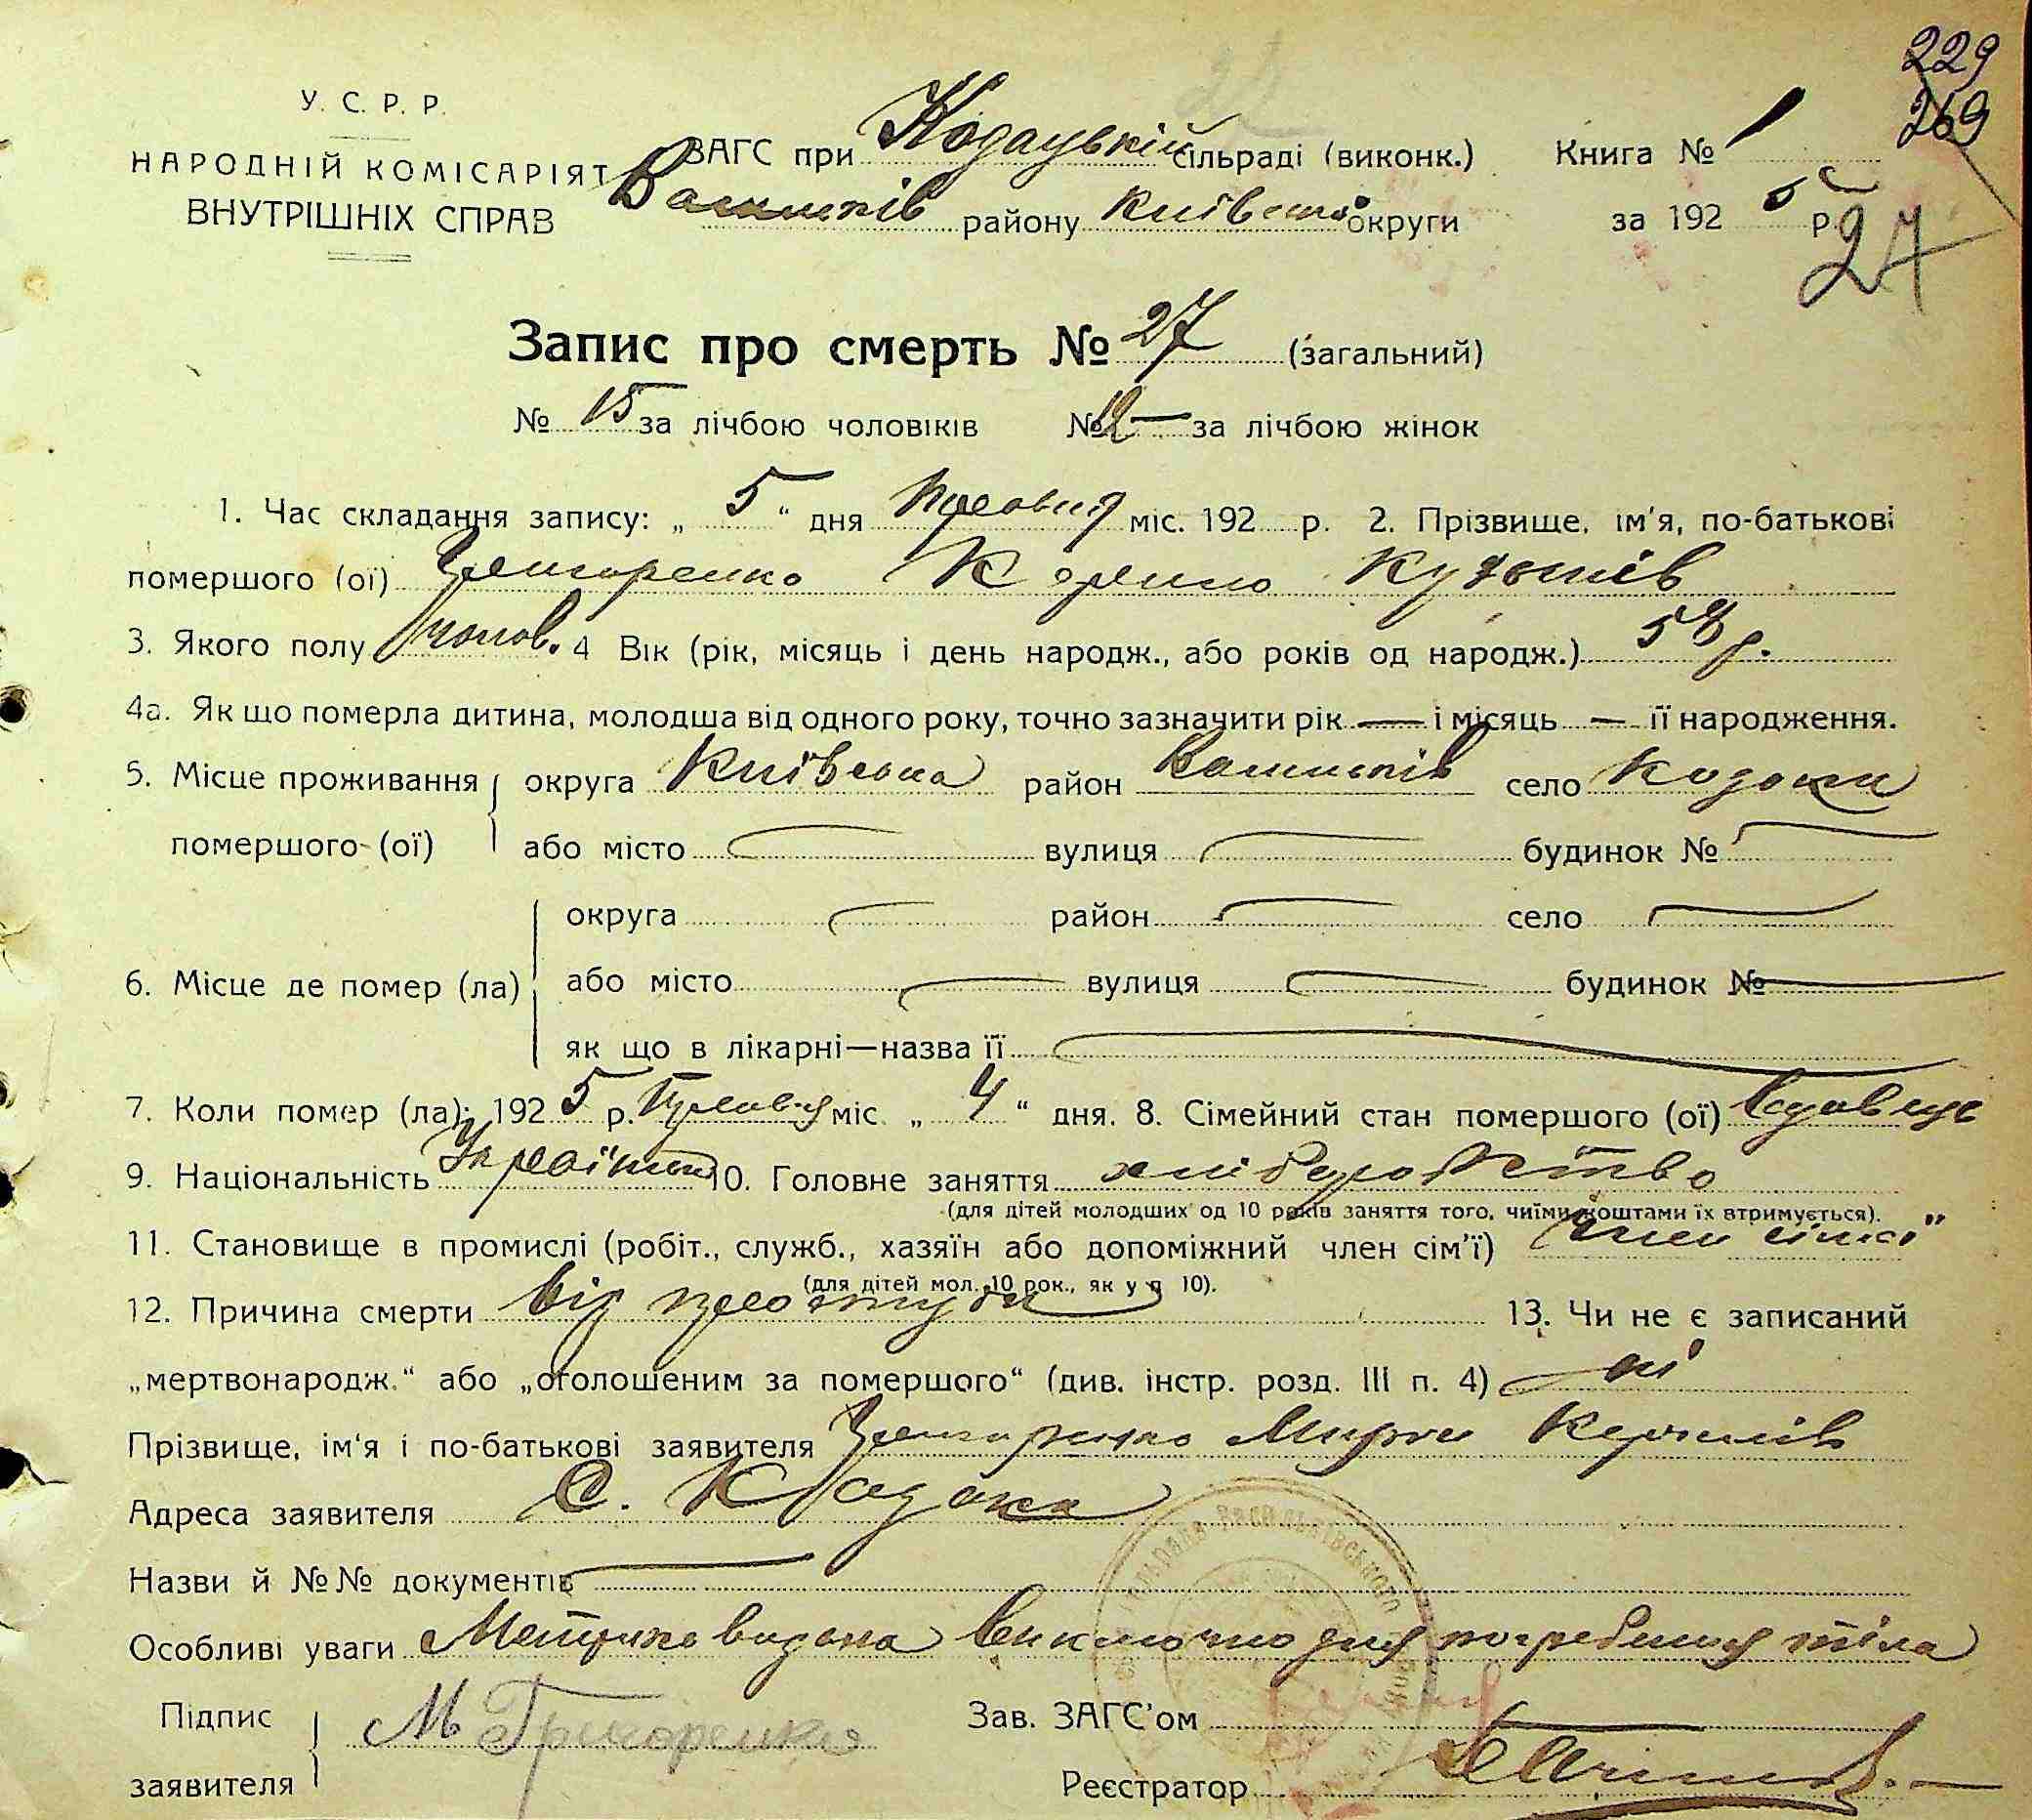 229
269
У. С. Р. Р.
НАРОДНІЙ КОМІСАРІЯТ
ВНУТРІШНІХ СПРАВ
ВАГС при Кодацькій сільраді (виконк.)
Книга № 1
Васильків району Київської округи
за 192 5 р.
27
Запис про смерть № 27 (загальний)
№ 15 за лічбою чоловіків № 12 за лічбою жінок
1. Час складання запису: „ 5 “ дня Травня міс. 192 р. 2. Прізвище, ім'я, по-батькові
помершого (ої) Григоренко Кузьмів
3. Якого полу чолов. 4 Вік (рік, місяць і день народж., або років од народж.) 58 р.
4а. Як що померла дитина, молодша від одного року, точно зазначити рік — і місяць — її народження.
5. Місце проживання помершого (ої) округа Київська район Васильків село Кодаки
або місто вулиця будинок №
6. Місце де помер (ла) округа район село
або місто вулиця будинок №
як що в лікарні—назва її
7. Коли помер (ла): 192 5 р. Травня міс. „ 4 “ дня. 8. Сімейний стан помершого (ої) вдовець
9. Національність Українец 10. Головне заняття хліборобство
(для дітей молодших од 10 років заняття того, чиїми коштами їх втримується).
11. Становище в промислі (робіт., служб., хазяїн або допоміжний член сім'ї) член сімї
(для дітей мол. 10 рок., як у п 10).
12. Причина смерти від простуди 13. Чи не є записаний
„мертвонародж.“ або „оголошеним за помершого“ (див. інстр. розд. III п. 4) ні
Прізвище, ім'я і по-батькові заявителя Григоренко
Адреса заявителя С. Кодаки
Назви й №№ документів
Особливі уваги Метрика видана виключно для погребения тіла
Підпис заявителя М Григоренко
Зав. ЗАГС'ом
Реєстратор